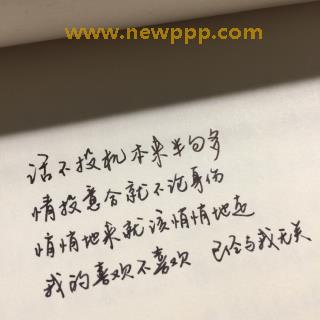 www.newppp.com
话不投机本来半句多
情投意合就不论身份
悄悄地来就该悄悄地走
我的喜欢不喜欢 已经与我无关